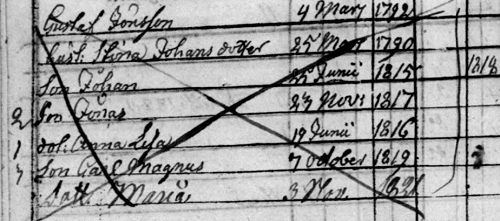 Gustaf Jönsson 4 Mart 1792
hust: Stina Johans dotter 25 Mart 1790
Son Johan 25 Junii 1815 1818
2 Do Jonas 23 Nov: 1817
1 dot: Anna Lisa 19 Junii 1816
7 Son Carl Magnus 7 October 1819
Dott Maria 3